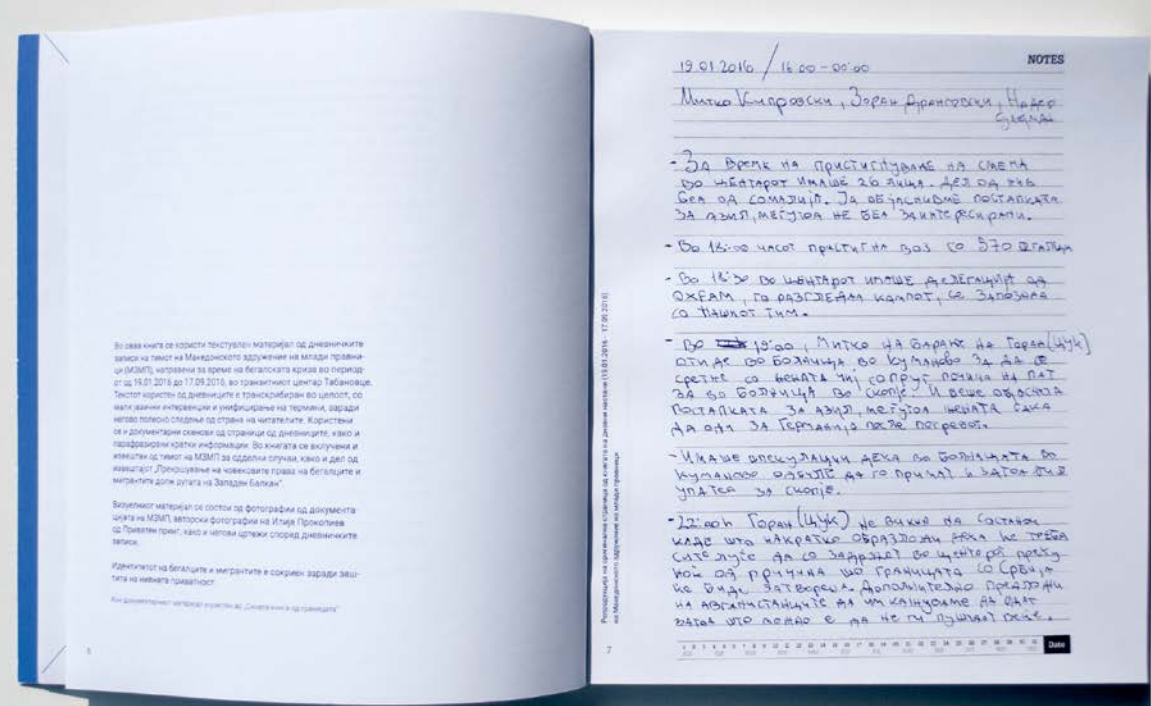 Во оваа книга се користи текстуален материјал од дневничките
записи на тимот на Македонското здружение на млади правни-
ци (МЗМП), направени за време на бегалската криза во период-
от од 19.01.2016 до 17.09.2016, во транзитниот центар Табановце.
Текстот користен од дневниците е транскрибиран во целост, со
мали јазични интервенции и унифицирање на термини, заради
негово полесно следење од страна на читателите. Користени
се и документарни скенови од страници од дневниците, како и
парафразирани кратки информации. Во книгата се вклучени и
извештаи од тимот на МЗМП за одделни случаи, како и дел од
извештајот „Прекршување на човековите права на бегалците и
мигрантите долж рутата на Западен Балкан“.
Визуелниот материјал се состои од фотографии од документа
цијата на МЗМП, авторски фотографии на Илија Прокопиев
од Приватен принт, како и негови цртежи според дневничките
записи.
Идентитетот на бегалците и мигрантите е сокриен заради заш-
тита на нивната приватност.
6
Репродукција на оригинална страница од книгата на дневни настани (19.01.2016 - 17.09.2016)
на Македонското здружение на млади правници
7
NOTES
19.01.2016 / 16:00 - 00:00
Митко Кипровски, Зоран Дранговски, Надер
- За време на пристигнување на смена
во центарот имаше 26 лица. Дел од нив
беа од Сомалија. Ја објаснивме постапката
за азил, меѓутоа не беа заинтересирани.
- Во 18:00 часот пристигна воз со 570 бегалци
- Во 18:30 во центарот имаше делегација од
OXFAM, го разгледаа кампот, се запознаа
со нашиот тим.
- Во 19:00, Митко на барање на Горан (ЦУК)
отиде во болница во Куманово за да се
сретне со жената чиј сопруг почина на пат
за во болница во Скопје. И беше објаснета
постапката за азил, меѓутоа жената сака
да оди за Германија после погребот.
- Имаше шпекулации дека во болницата во
Куманово одбиле да го примат и затоа бил
упатен за Скопје.
- 22:00h Горан (ЦУК) не викна на состанок
каде што накратко образложи дека ќе треба
сите луѓе да се задржат во центарот преку
ноќ од причина што границата со Србија
ќе биде затворена. Дополнително предложи
на авганистанците да им кажуваме да одат
затоа што можно е да не ги пуштат
Date